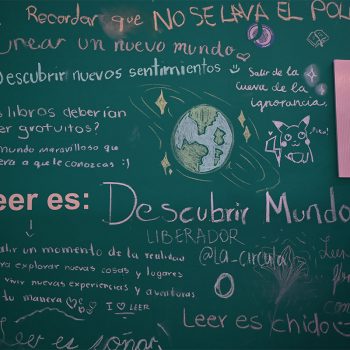 Recordar que NO SE LAVA EL POL
Crear un nuevo mundo
Descubrir nuevos sentimientos
Salir de la
cueva de la
ignorancia
libros deberían
ser gratuitos?
Pika!
mundo maravilloso que
espera a que lo conozcas :)
Leer es:
Descubrir Mundo
LIBERADOR
@la_circula
un momento de la realidad
para explorar nuevas cosas y lugares
vivir nuevas experiencias y aventuras
tu manera
I ♡ LEER
Leer
Leer es chido
Leer es soñar